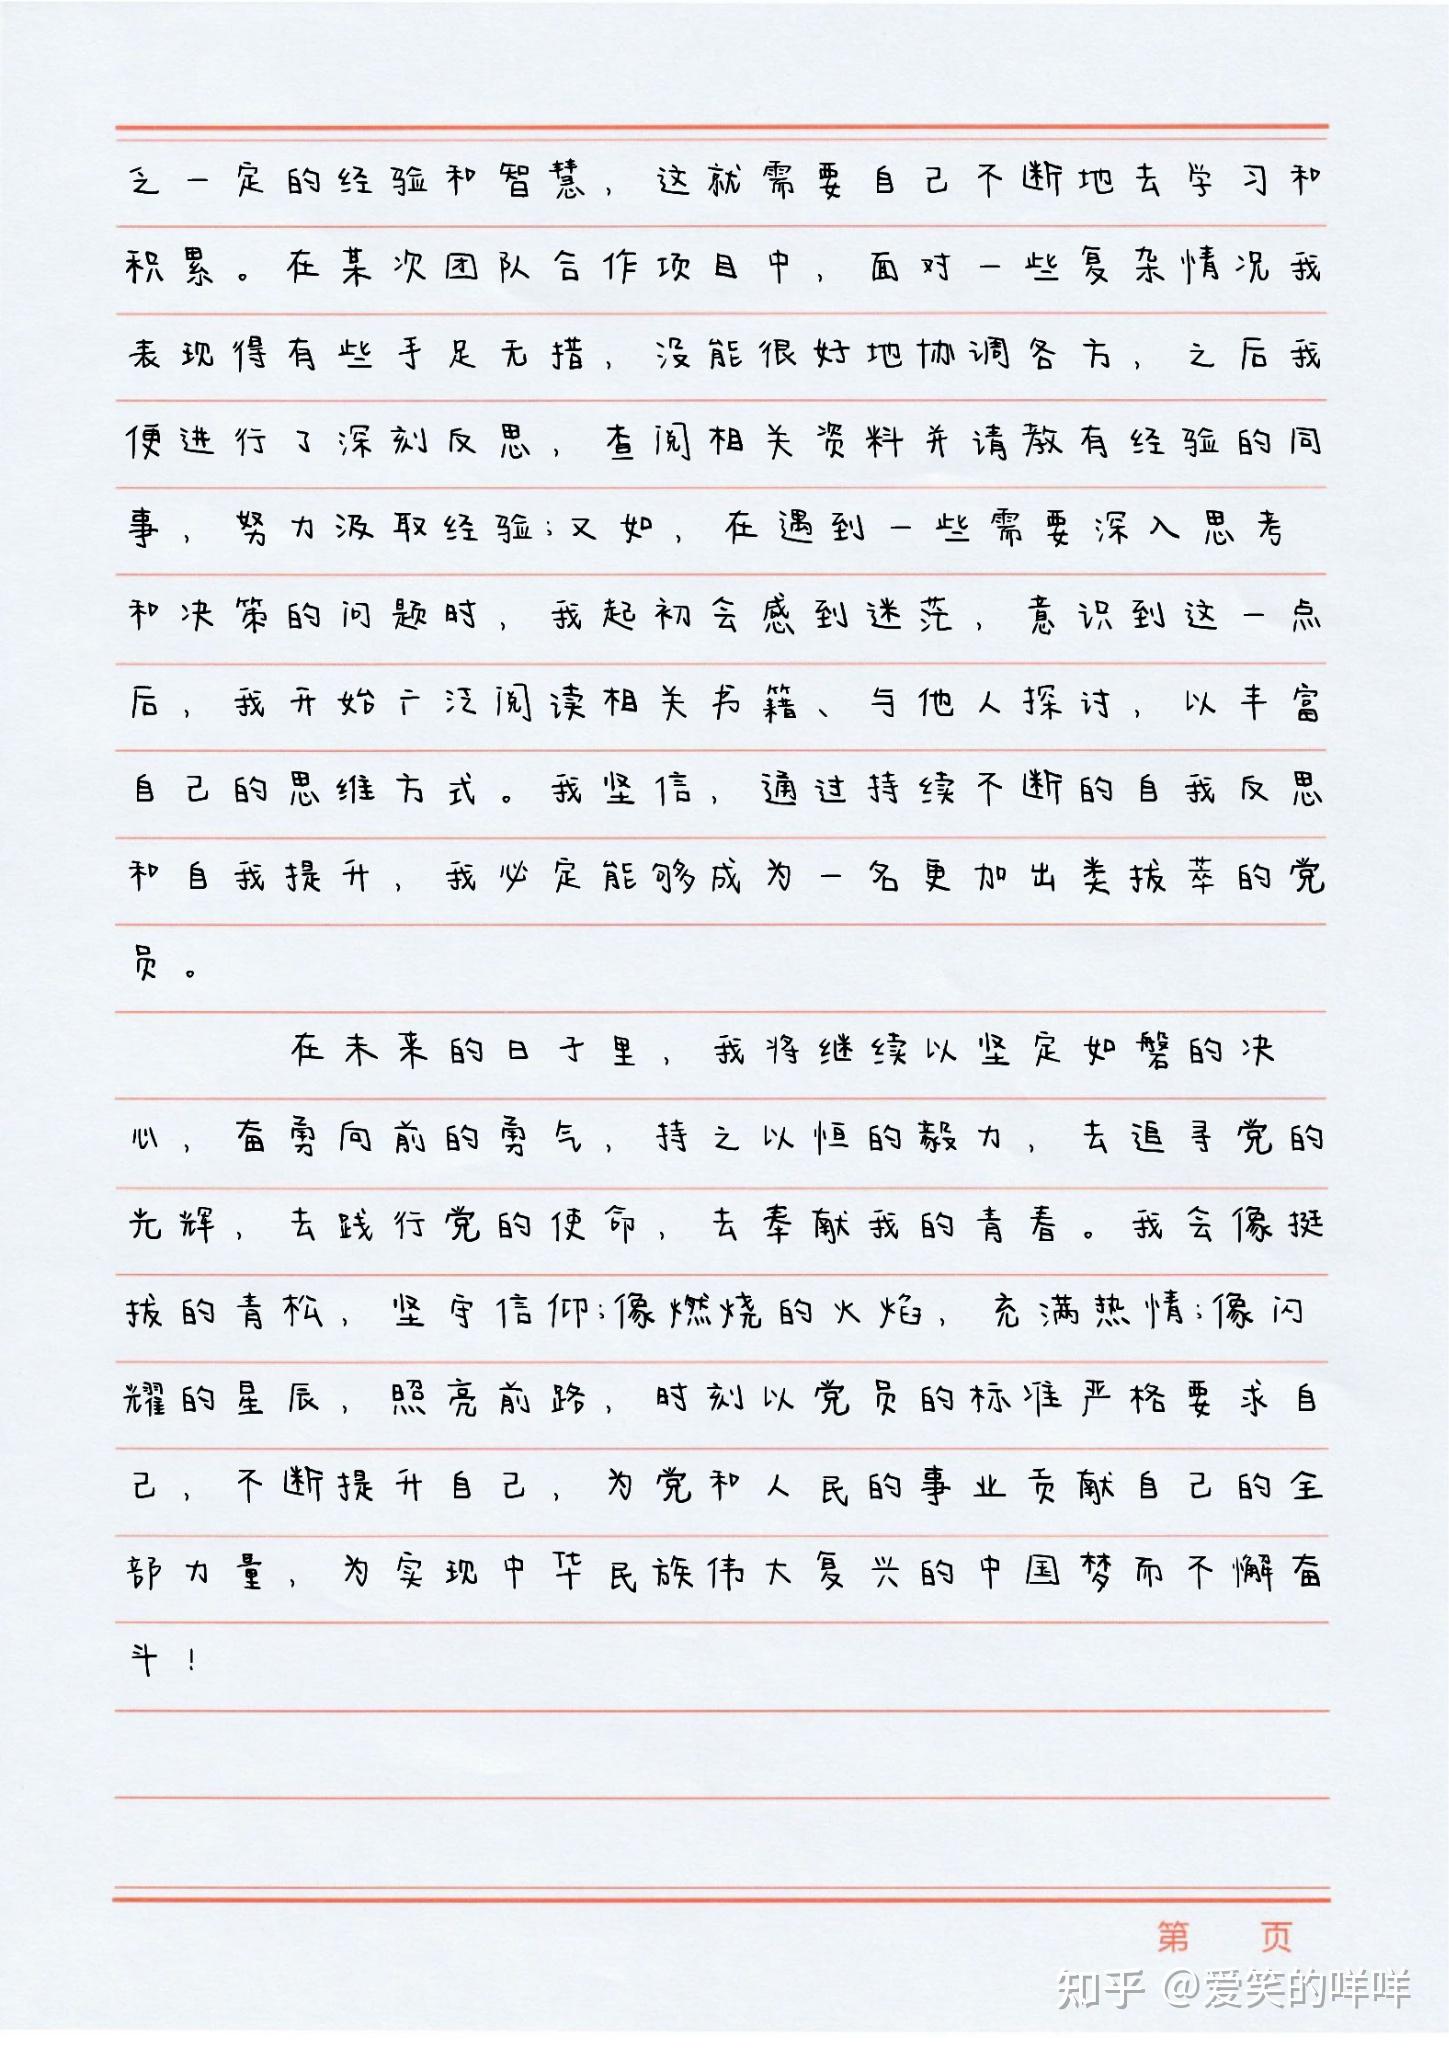 乏一定的经验和智慧，这就需要自己不断地去学习和
积累。在某次团队合作项目中，面对一些复杂情况我
表现得有些手足无措，没能很好地协调各方，之后我
便进行了深刻反思，查阅相关资料并请教有经验的同
事，努力汲取经验；又如，在遇到一些需要深入思考
和决策的问题时，我起初会感到迷茫，意识到这一点
后，我开始广泛阅读相关书籍、与他人探讨，以丰富
自己的思维方式。我坚信，通过持续不断的自我反思
和自我提升，我必定能够成为一名更加出类拔萃的党
员。
在未来的日子里，我将继续以坚定如磐的决
心，奋勇向前的勇气，持之以恒的毅力，去追寻党的
光辉，去践行党的使命，去奉献我的青春。我会像挺
拔的青松，坚守信仰；像燃烧的火焰，充满热情；像闪
耀的星辰，照亮前路，时刻以党员的标准严格要求自
己，不断提升自己，为党和人民的事业贡献自己的全
部力量，为实现中华民族伟大复兴的中国梦而不懈奋
斗！
第 页
知乎 @爱笑的咩咩